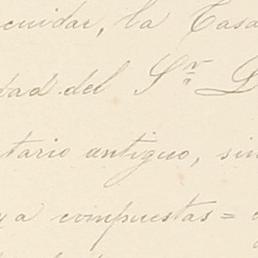 cuidar, la Casa
dad del Sr D
tario antiguo, sin
ya compuestas =